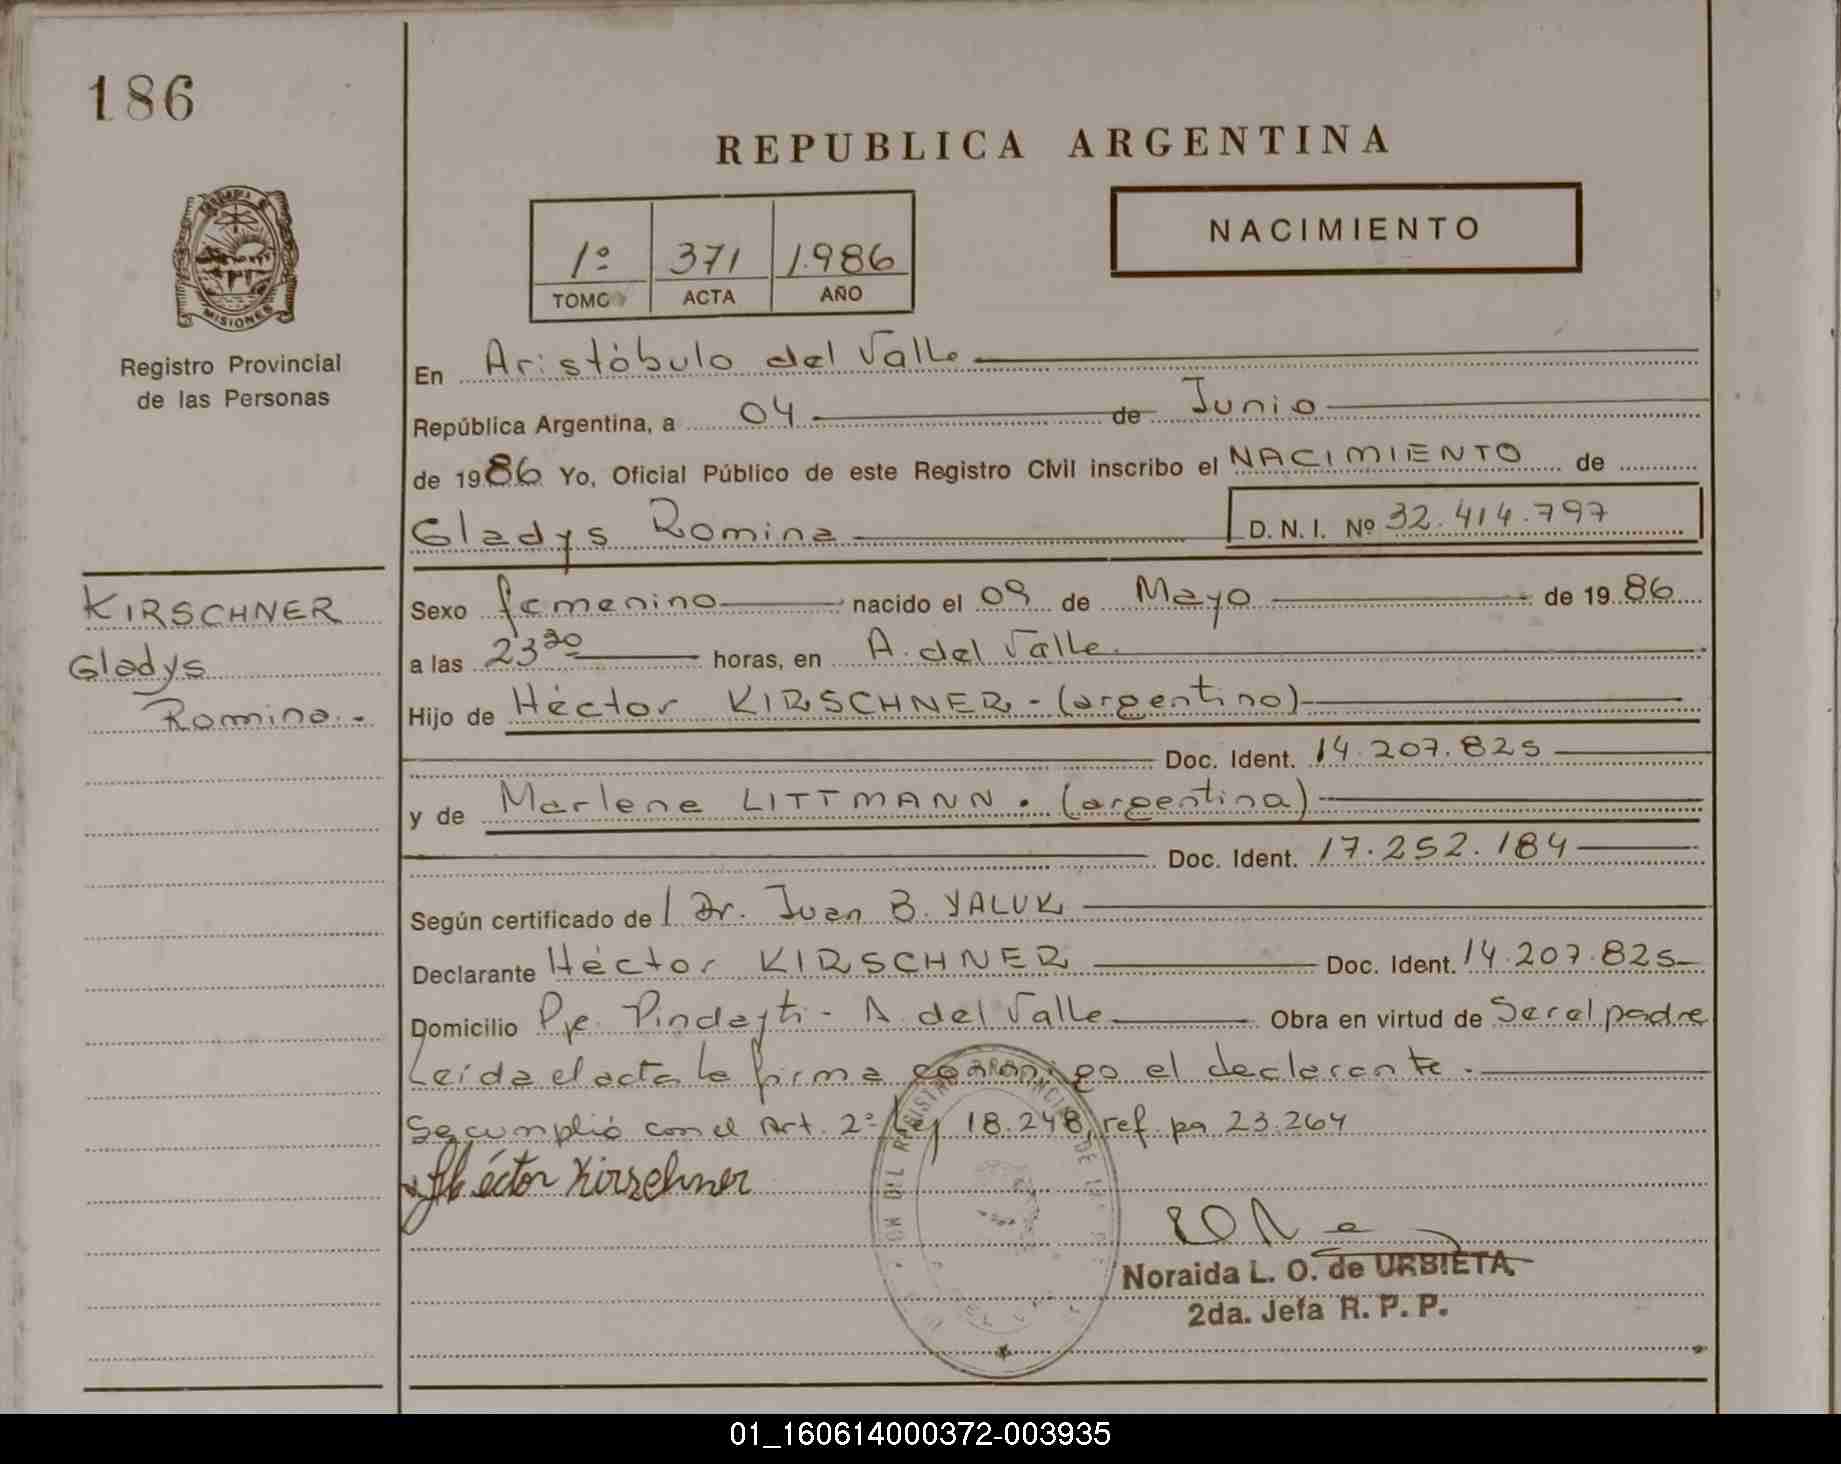 186
REPUBLICA ARGENTINA
NACIMIENTO
1º 371 1.986
TOMO ACTA AÑO
MISIONES
Registro Provincial
de las Personas
En Aristóbulo del Valle
República Argentina, a 04 de Junio
de 1986 Yo, Oficial Público de este Registro Civil inscribo el NACIMIENTO de
Gladys Romina D. N. I. Nº 32.414.797
KIRSCHNER
Gladys
Romina.-
Sexo femenino nacido el 09 de Mayo de 1986
a las 23 30 horas, en A. del Valle
Hijo de Héctor KIRSCHNER - (argentino)
Doc. Ident. 14.207.825
y de Marlene LITTMANN. (argentina)
Doc. Ident. 17.252.184
Según certificado del Dr. Juan B. YALUK
Declarante Héctor KIRSCHNER Doc. Ident. 14.207.825
Domicilio Pje. Pindayti - A. del Valle Obra en virtud de Ser el padre
Leída el acta la firma conmigo el declarante.
Se cumplió con el Art. 2º Ley 18.248, ref. pa 23.264
Héctor Kirschner
Noraida L. O. de URBIETA
2da. Jefa R. P. P.
01_160614000372-003935